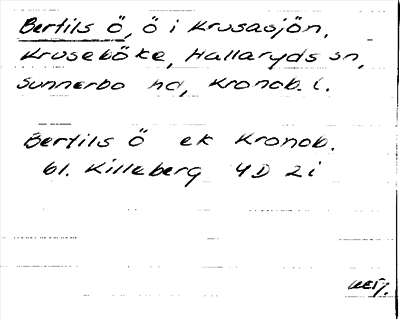 Bertils ö, ö i Krusasjön,
Kruseböke, Hallaryds sn,
Sunnerbo hd, Kronob. l.
Bertils Ö ek Kronob.
bl. Killeberg 4D 2i